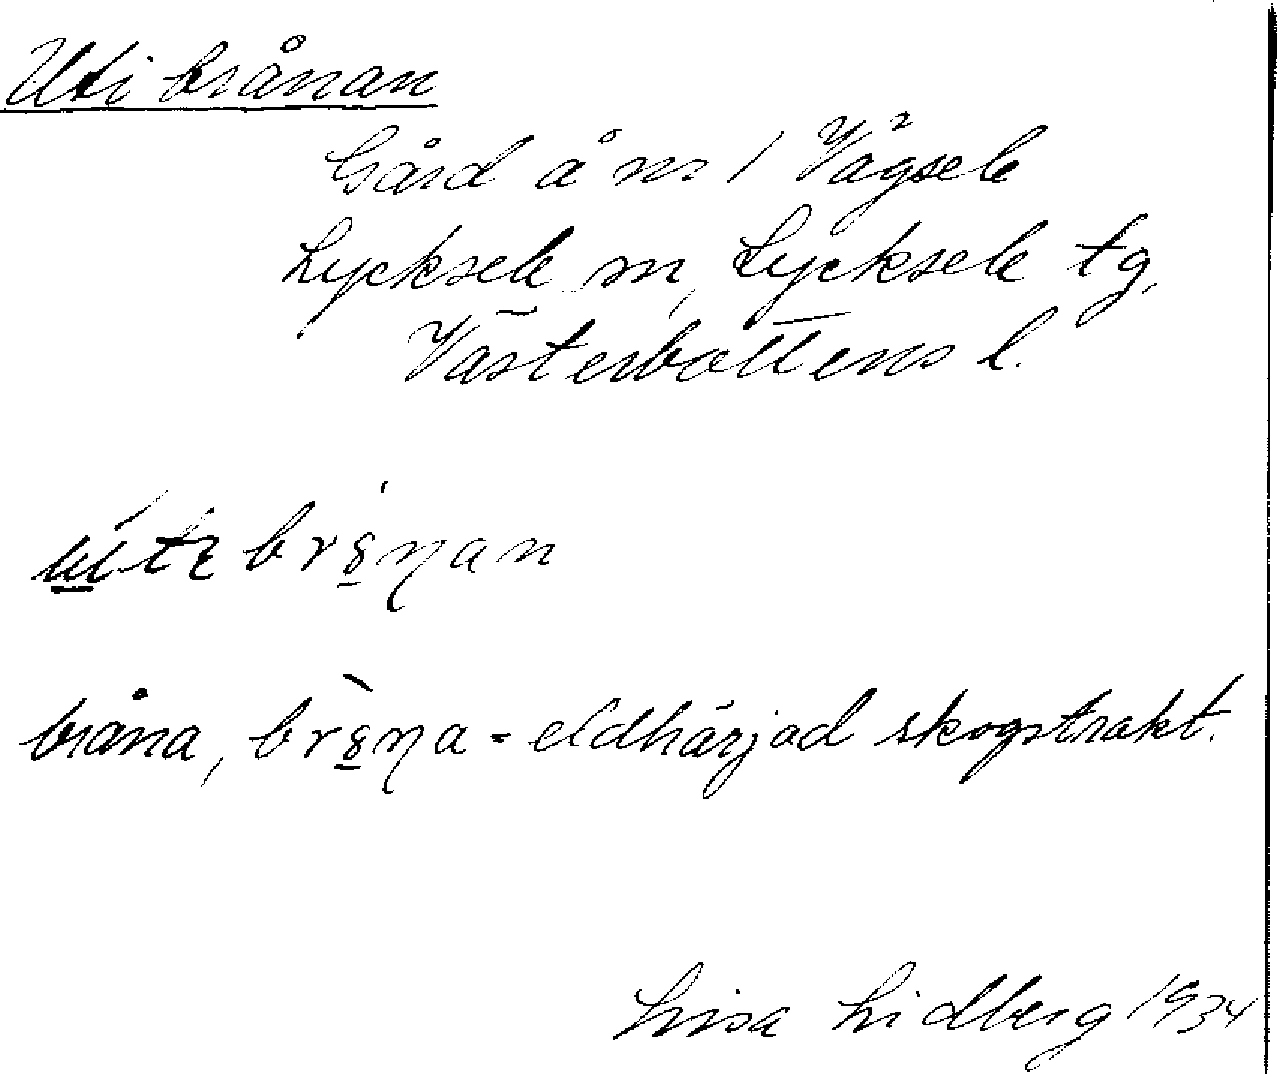 Uti brånan
Gård å nr 1 Vägsele
Lycksele sn, Lycksele tg,
Västerbottens l.
bråna, - eldhärjad skogstrakt.
Lisa Lidberg 1934